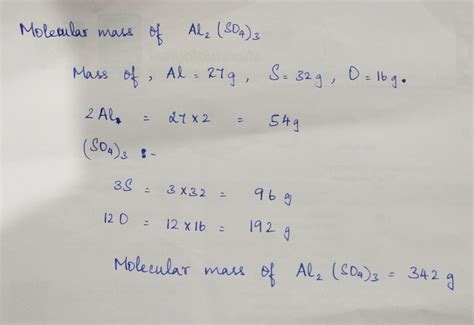 Molecular mass of Al₂(SO₄)₃
Mass of, Al = 27g, S = 32g, O = 16g.
2Al = 27 × 2 = 54g
(SO₄)₃ :-
3S = 3 × 32 = 96 g
12 O = 12 × 16 = 192 g
Molecular mass of Al₂(SO₄)₃ = 342 g